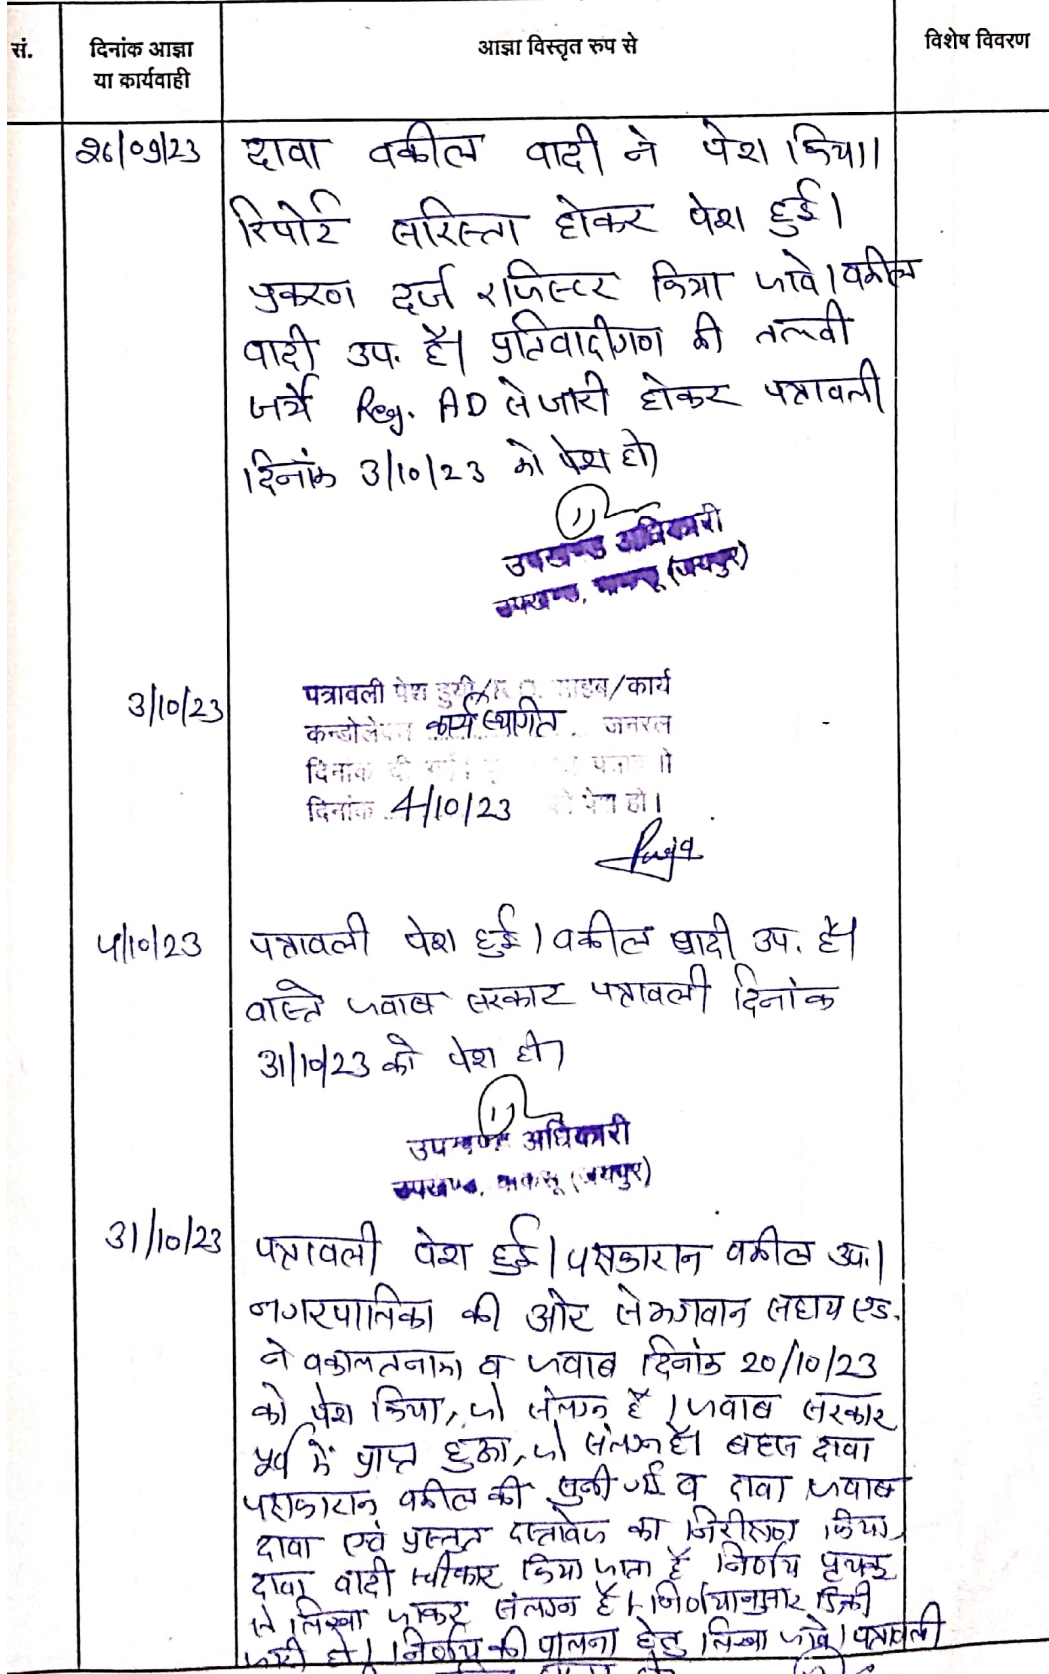 सं.
दिनांक आज्ञा
या कार्यवाही
आज्ञा विस्तृत रुप से
विशेष विवरण
26/09/23
दावा वकील वादी ने पेश किया।
रिपोर्ट सरिस्ता होकर पेश हुई।
प्रकरण दर्ज रजिस्टर किया जावे। वकील
वादी उप. है। प्रतिवादीगण की तलवी
जर्ये Reg. AD से जारी होकर पत्रावली
दिनांक 3/10/23 को पेश हो।
उपखण्ड अधिकारी
उपखण्ड, चाकसू (जयपुर)
3/10/23
पत्रावली पेश हुयी/ साहब/कार्य
कार्य स्थगित जनरल
दिनांक
दिनांक 4/10/23 को पेश हो।
Puja
4/10/23
पत्रावली पेश हुई। वकील वादी उप. है।
वास्ते जवाब सरकार पत्रावली दिनांक
31/10/23 को पेश हो।
उपखण्ड अधिकारी
उपखण्ड, चाकसू (जयपुर)
31/10/23
पत्रावली पेश हुई। पक्षकारान वकील उप.।
नगरपालिका की ओर से भगवान सहाय एड.
ने वकालतनामा व जवाब दिनांक 20/10/23
को पेश किया, जो संलग्न है। जवाब सरकार
पूर्व में प्राप्त हुआ, जो संलग्न है। बहस दावा
पक्षकारान वकील की सुनी गई व दावा जवाब
दावा एवं प्रस्तुत दस्तावेज का निरीक्षण किया,
दावा वादी स्वीकार किया जाता है निर्णय पृथक
से लिखा जाकर संलग्न है। निर्णयानुसार डिक्री
जारी हो। निर्णय की पालना हेतु लिखा जावे। पत्रावली